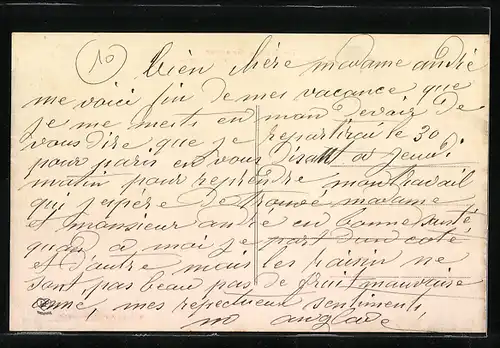 10
bien chère madame andré
me voici fin de mes vacance que
je me mests en mon devoir de
vous dire que je repartirai le 30
pour paris en vous disant a jeudi
matin pour reprendre montravail
qui jespere de trouvé madame
et monsieur andré en bonne santé
quand a moi je part d'un coté
et d'autre mais les raisin ne
sont pas beau pas de fruit mauvaise
mes repectueux sentiments
anglade